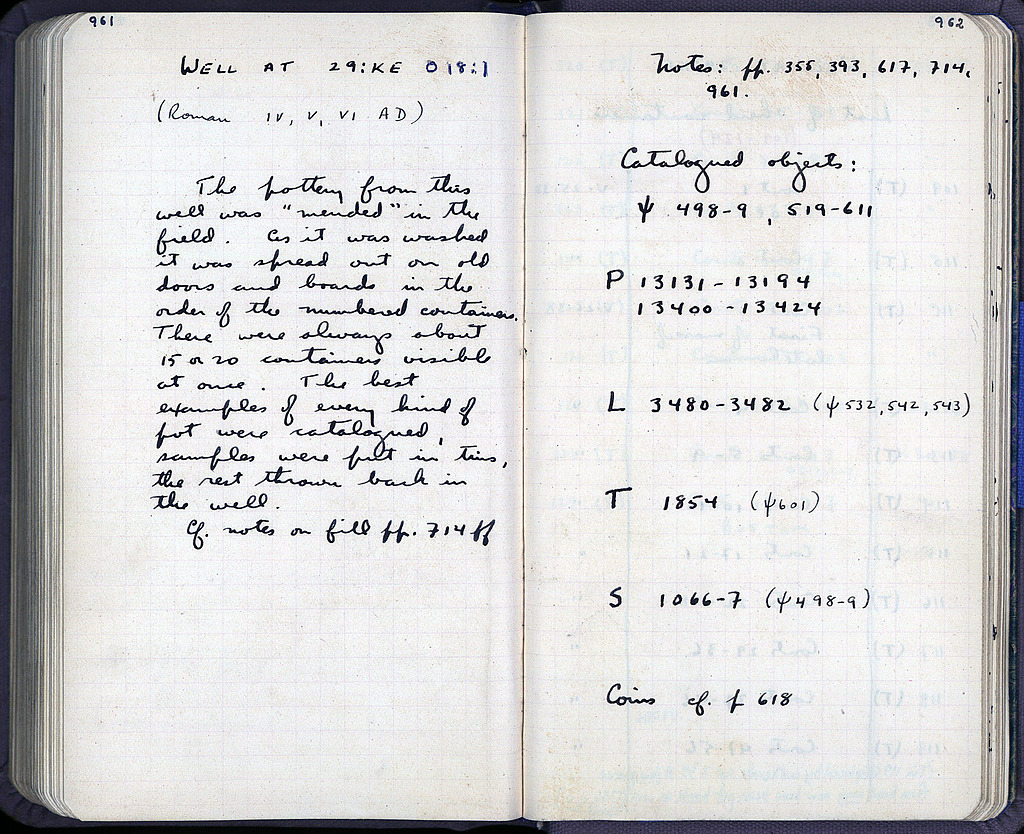 961
WELL AT 29:KE O 18:1
(Roman IV, V, VI AD)
The pottery from this
well was "mended" in the
field. As it was washed
it was spread out on old
doors and boards in the
order of the numbered containers.
There were always about
15 or 20 containers visible
at once. The best
examples of every kind of
pot were catalogued,
samples were put in tins,
the rest thrown back in
the well.
Cf. notes on fill pp. 714 ff
962
Notes: pp. 355, 393, 617, 714,
961.
Catalogued objects:
ψ 498-9, 519-611
P 13131 - 13194
13400 - 13424
L 3480-3482 (ψ 532, 542, 543)
T 1854 (ψ601)
S 1066-7 (ψ498-9)
Coins cf. p 618